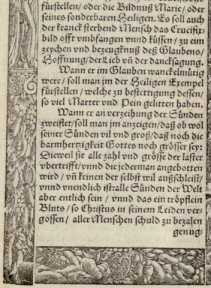 fürstellen / oder die Bildnuß Marie / oder
seines sonderbaren Heiligen. Es soll auch
der kranck sterbend Mensch das Crucifix
bild offt vmbfangen vnd küssen / zu ein
zeychen vnd bezeugknuß deß Glaubens /
Hoffnung / der Lieb vñ der dancksagung.
Wann er im Glauben wanckelmütig
were / soll man jm der Heiligen Exempel
fürstellen / welche zu befestigung dessen /
so viel Marter vnd Pein gelitten haben.
Wann er an verzeihung der Sünden
zweiflet / soll man jm anzeigen / daß ob wol
seiner Sünden vil vnd groß / daß noch die
barmhertzigkeit Gottes noch grösser sey:
Dieweil sie alle zahl vnd grösse der laster
vbertrifft / vnnd die jederman angebotten
wird / vñ keinen der selbst wil außschleüst /
vnnd vnendlich ist: alle Sünden der Welt
aber entlich sein / vnnd das ein tröpflein
Bluts / so Christus in seinem Leiden ver
gossen / aller Menschen schuld zu bezalen
genug: